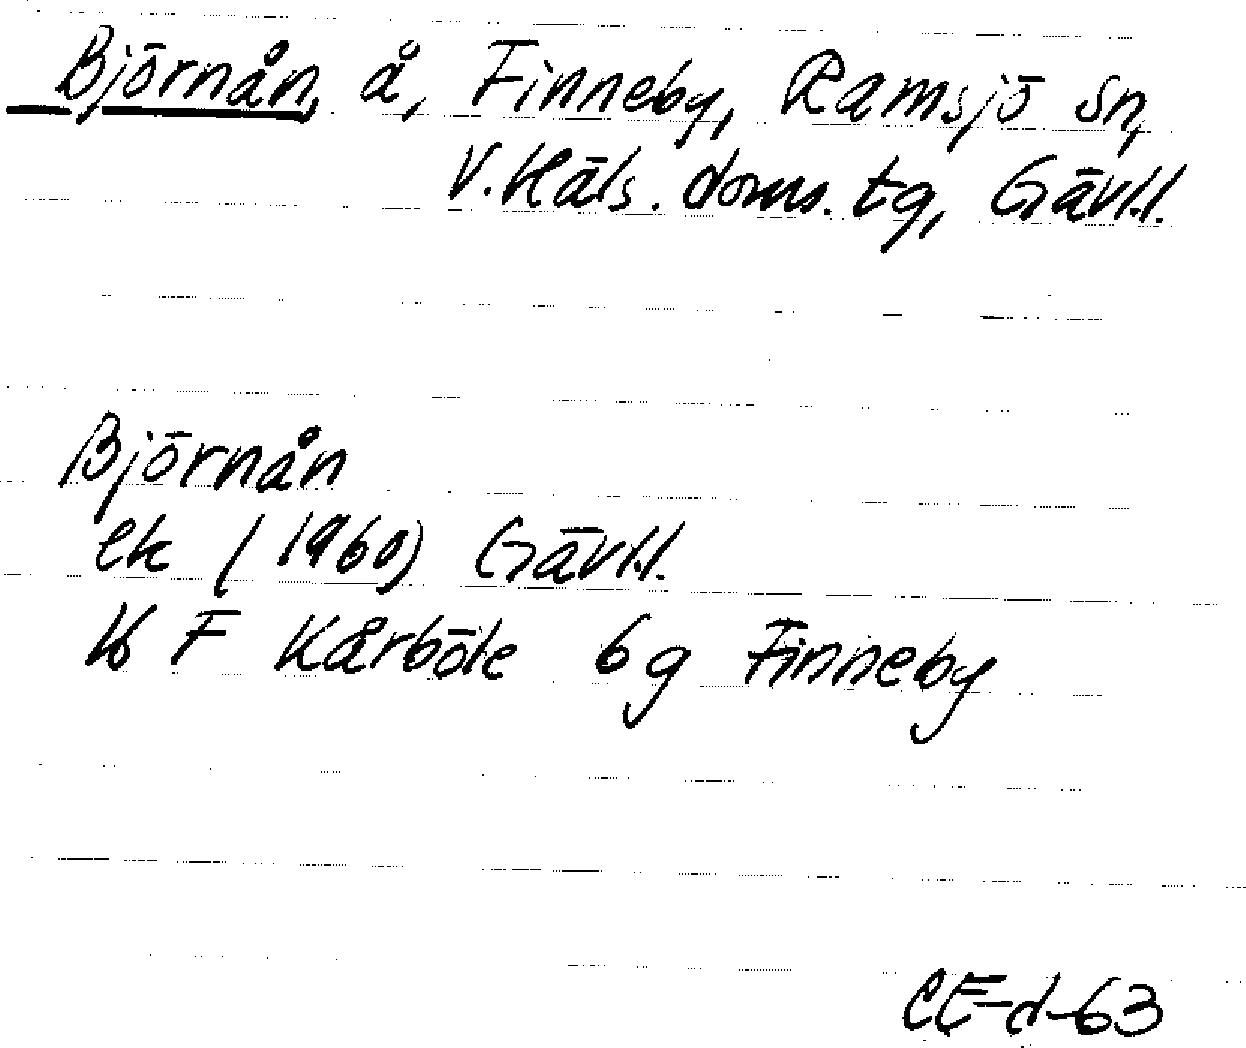 Björnån, å, Finneby, Ramsjö sn,
V. Häls. doms. tg, Gävl.l.
Björnån
ek (1960) Gävl.l.
F Kårböle 6g Finneby
CE-d-63